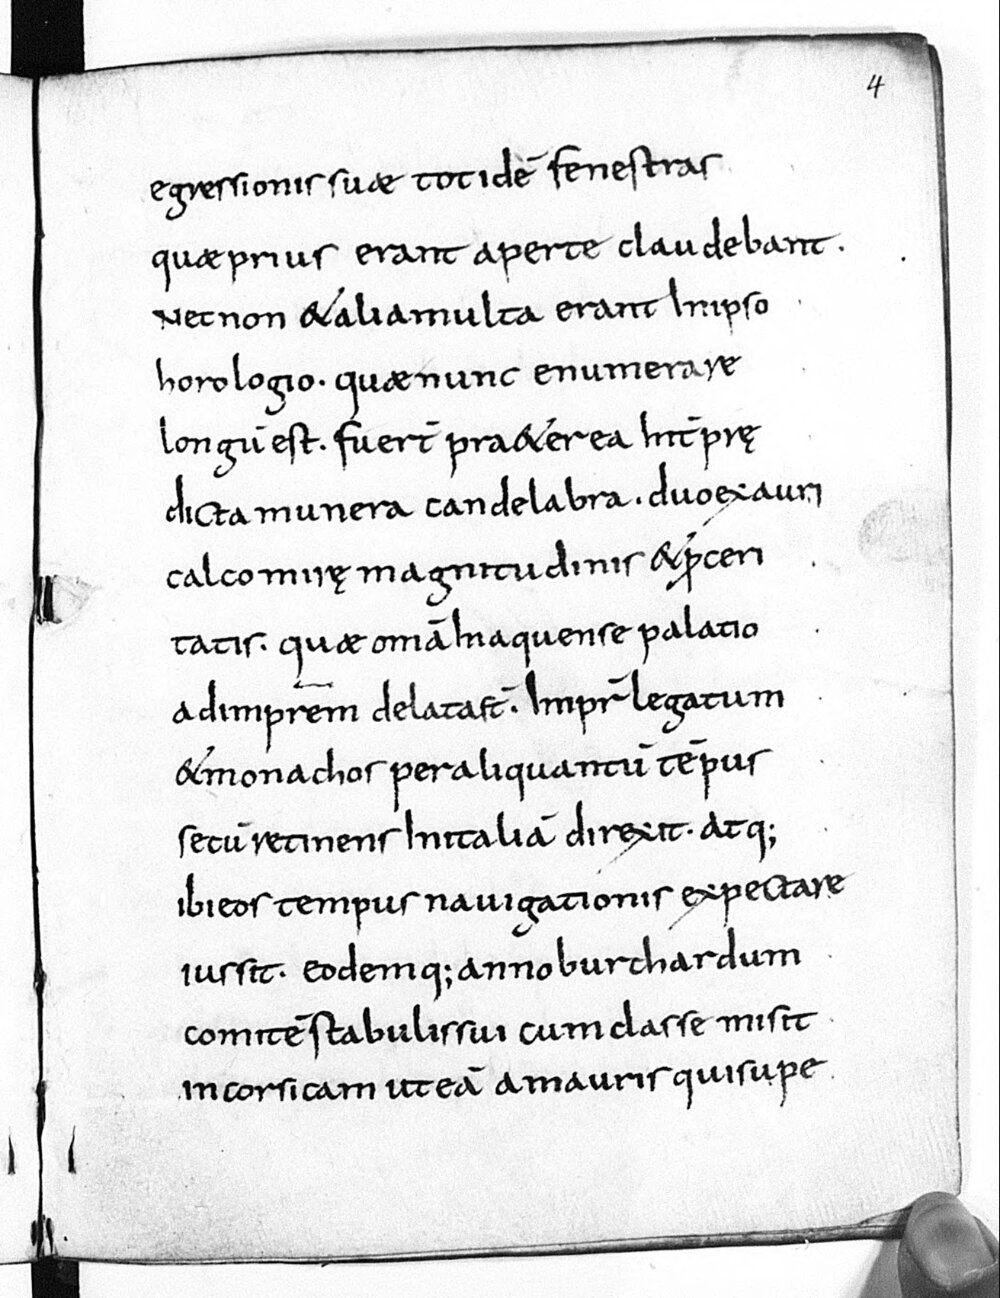 4
egressionis suæ totidē fenestras
quæ prius erant aperte claudebant.
Necnon & alia multa erant In ipso
horologio. quæ nunc enumerare
longū est. fuerī praeterea Int̄ prę
dicta munera candelabra. duo ex auri
calco mirę magnitudinis & ꝓceri
tatis. quæ omā In aquense palatio
ad imprēm delata sī. Impr̄ legatum
& monachos per aliquantū tēpus
secū retinens In italiā direxit. Atq;
ibi eos tempus nauigationis expectare
iussit. Eodemq; anno burchardum
comitē stabuli sui cum classe misit
in corsicam ut eā a mauris qui supe